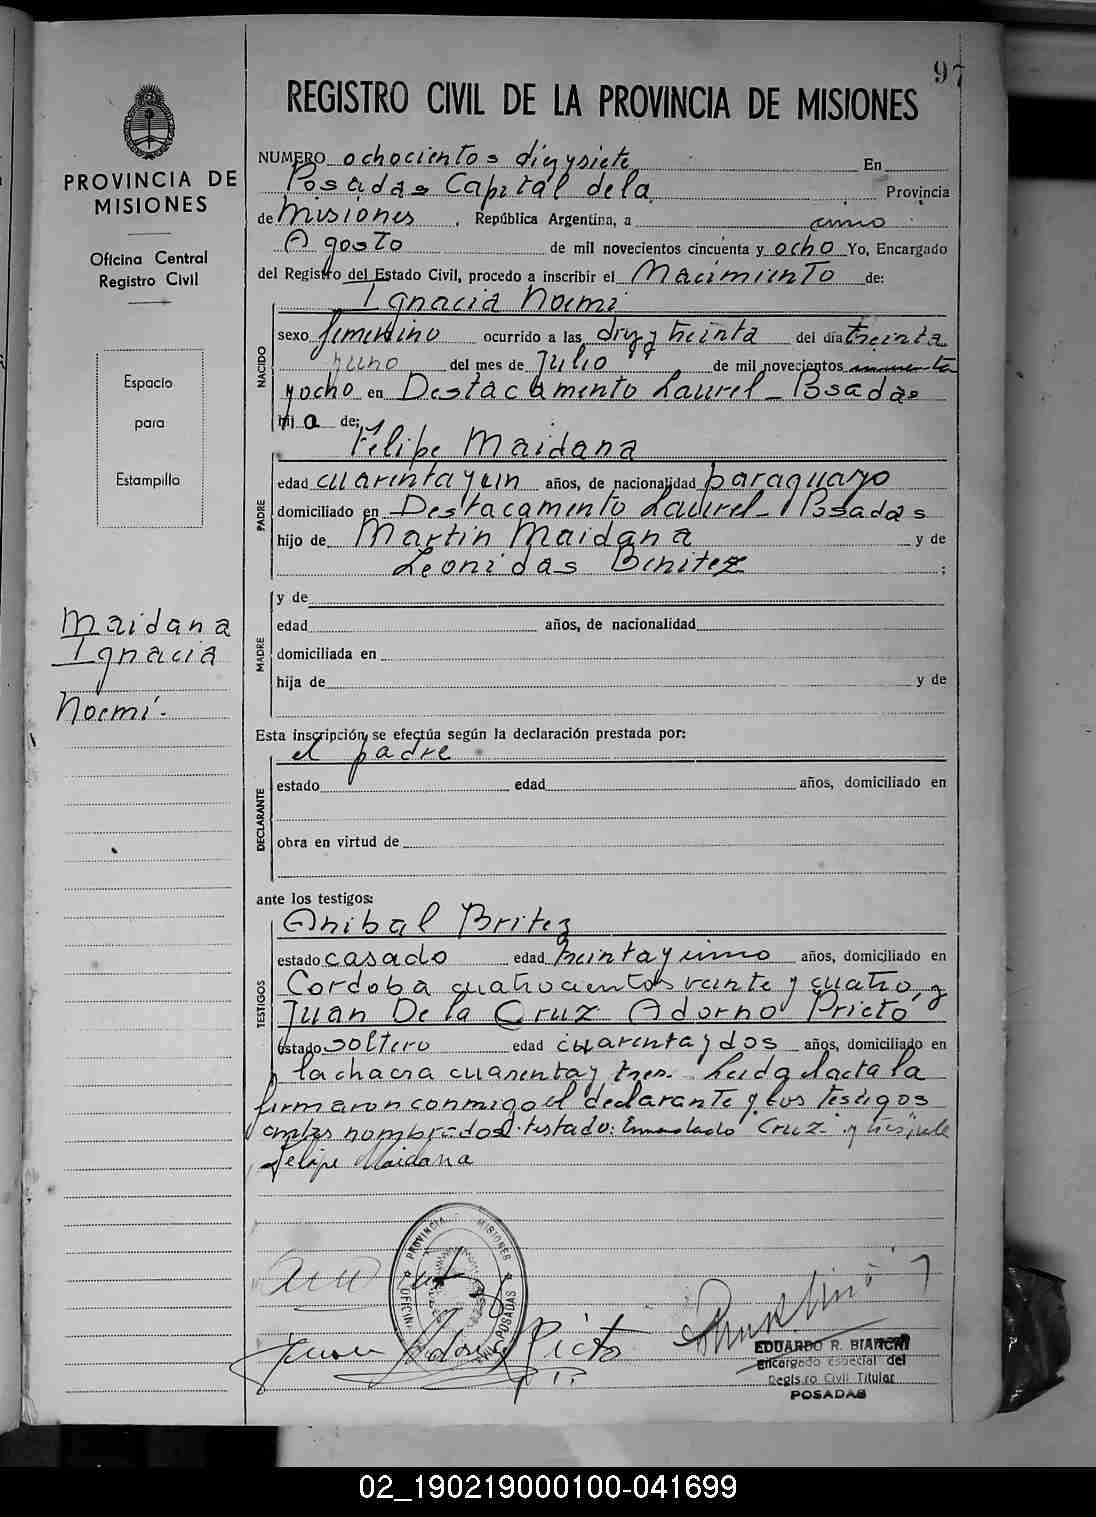 97
REGISTRO CIVIL DE LA PROVINCIA DE MISIONES
PROVINCIA DE
MISIONES
Oficina Central
Registro Civil
Espacio
para
Estampilla
Maidana
Ignacia
Noemí.
NUMERO ochocientos diezysiete En
Posadas Capital dela Provincia
de Misiones, República Argentina, a
Agosto de mil novecientos cincuenta y ocho Yo, Encargado
del Registro del Estado Civil, procedo a inscribir el Nacimiento de:
Ignacia Noemi
NACIDO
sexo femenino ocurrido a las diez y treinta del día treinta
yuno del mes de Julio de mil novecientos
yocho en Destacamento Laurel - Posadas
hija de:
Felipe Maidana
PADRE
edad cuarentayun años, de nacionalidad paraguayo
domiciliado en Destacamento Laurel - Posadas
hijo de Martin Maidana y de
Leonidas Benitez ;
MADRE
y de
edad años, de nacionalidad
domiciliada en
hija de y de
Esta inscripción se efectúa según la declaración prestada por:
el padre
DECLARANTE
estado edad años, domiciliado en
obra en virtud de
ante los testigos:
Anibal Britez
TESTIGOS
estado casado edad treintayuno años, domiciliado en
Cordoba cuatrocientos veinte y cuatro, y
Juan De la Cruz Adorno Prieto
estado soltero edad cuarentaydos años, domiciliado en
lachacra cuarentay tres. Leida elacta la
firmaron conmigo el declarante y los testigos
nombrados. testado: Enmendado Cruz y
Felipe Maidana
PROVINCIA MISIONES
POSADAS
Juan Adorno Prieto
EDUARDO R. BIANCHI
Encargado Especial del
Registro Civil Titular
POSADAS
02_190219000100-041699